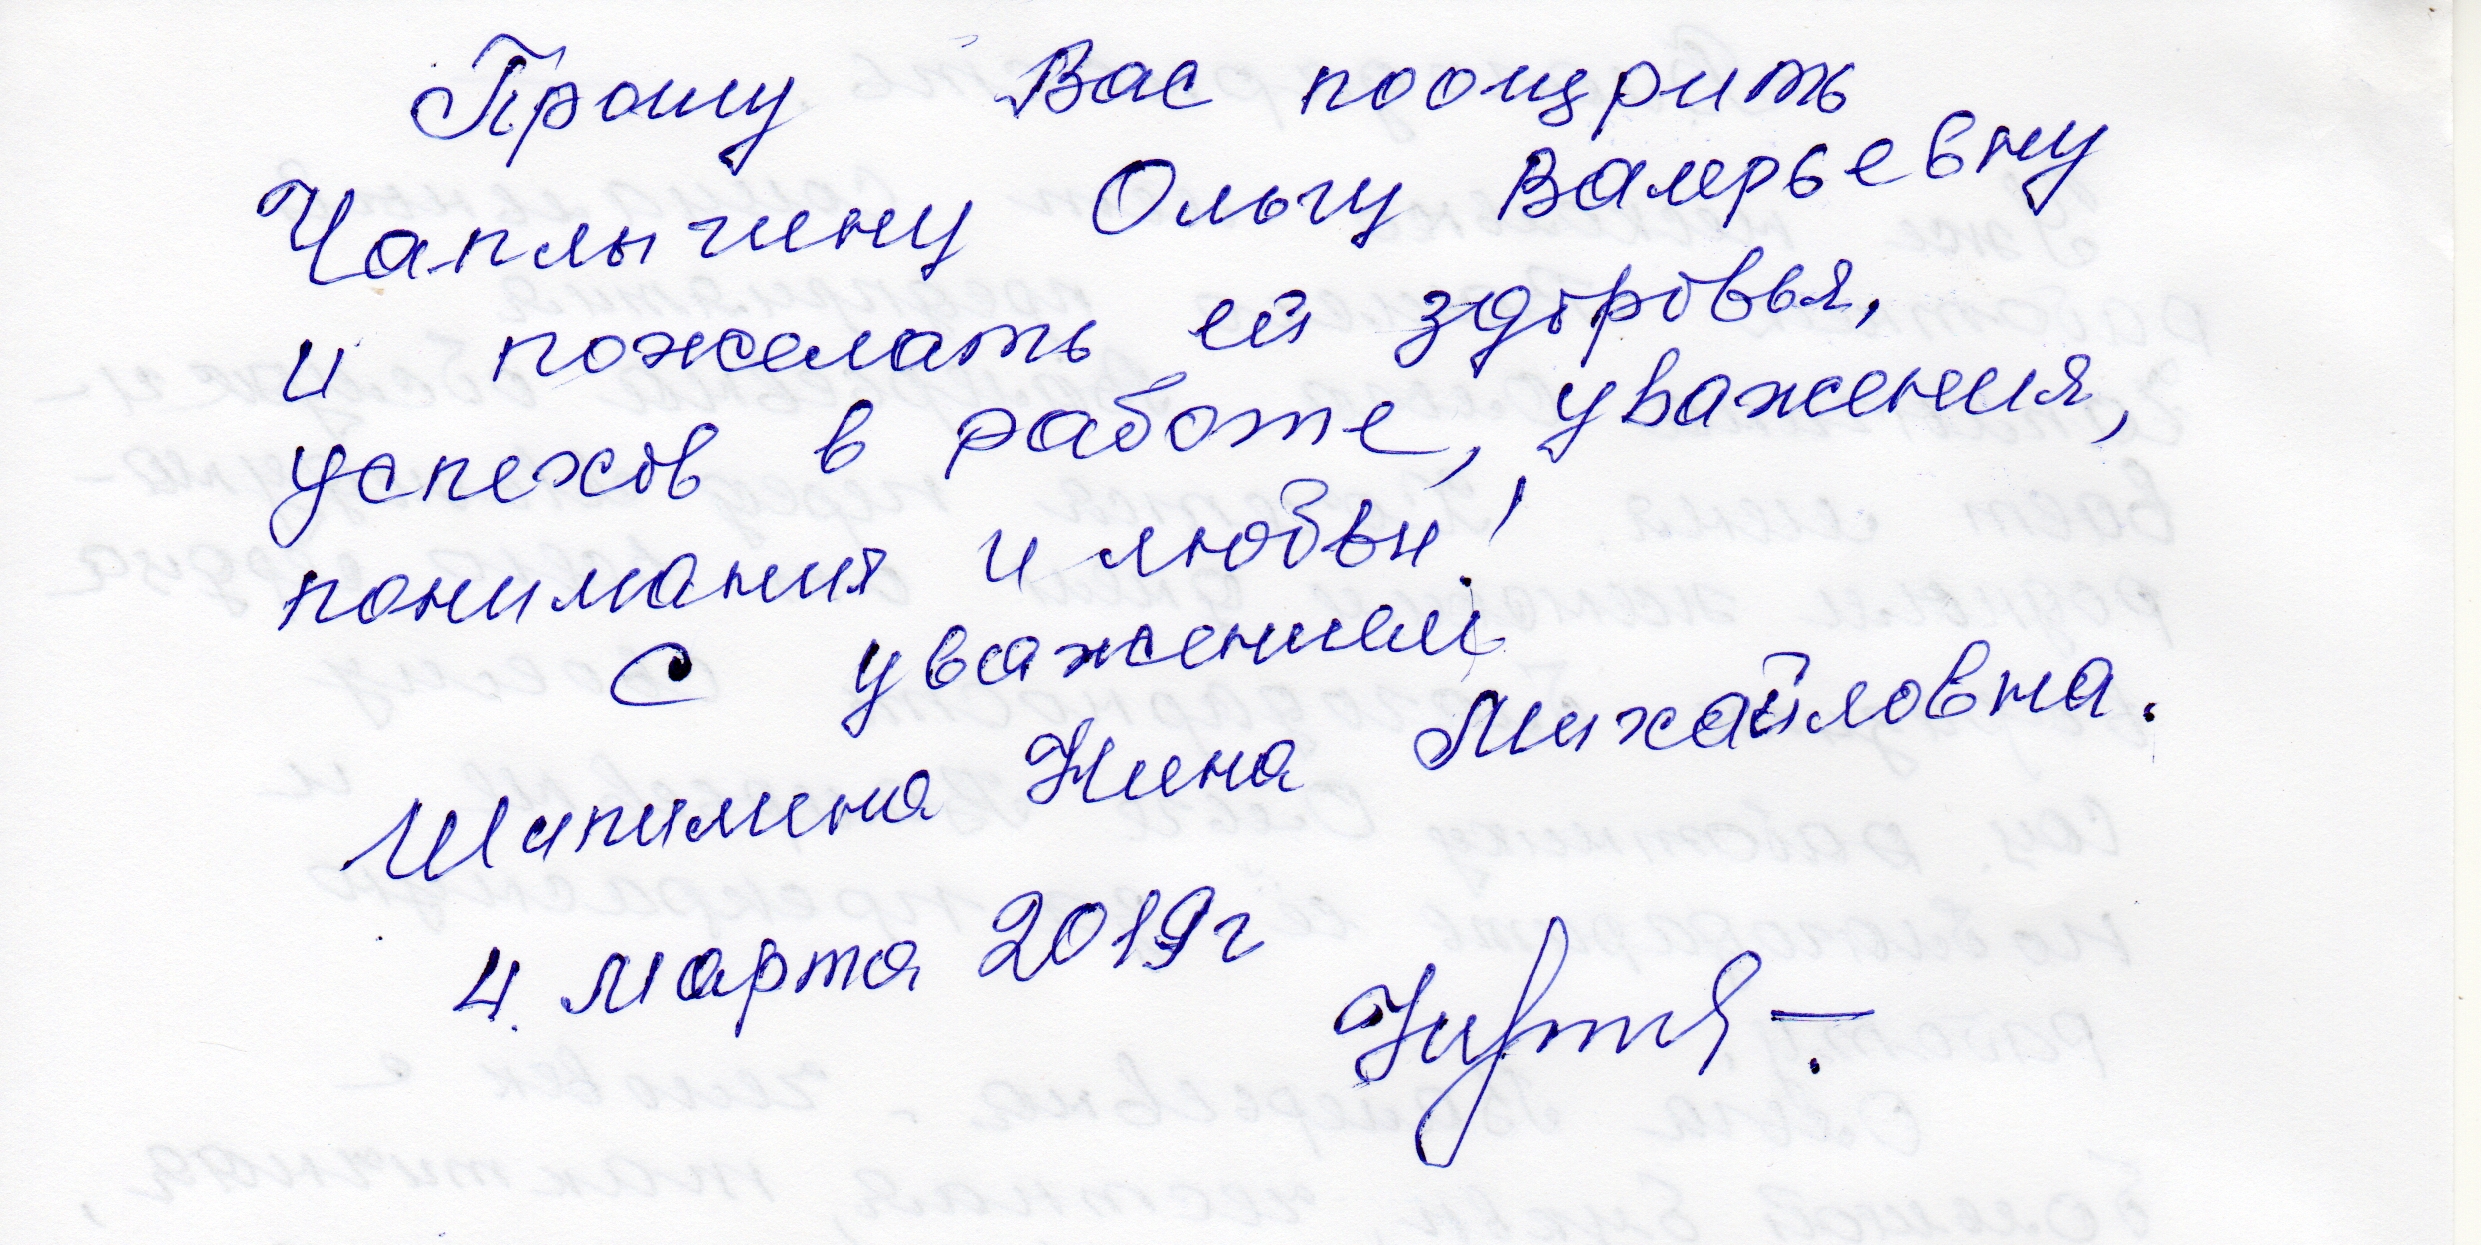 Прошу Вас поощрить
Чаплыгину Ольгу Валерьевну
и пожелать ей здоровья,
успехов в работе, уважения,
понимания и любви!
С уважением
Шипилина Нина Михайловна.
4. марта 2019г